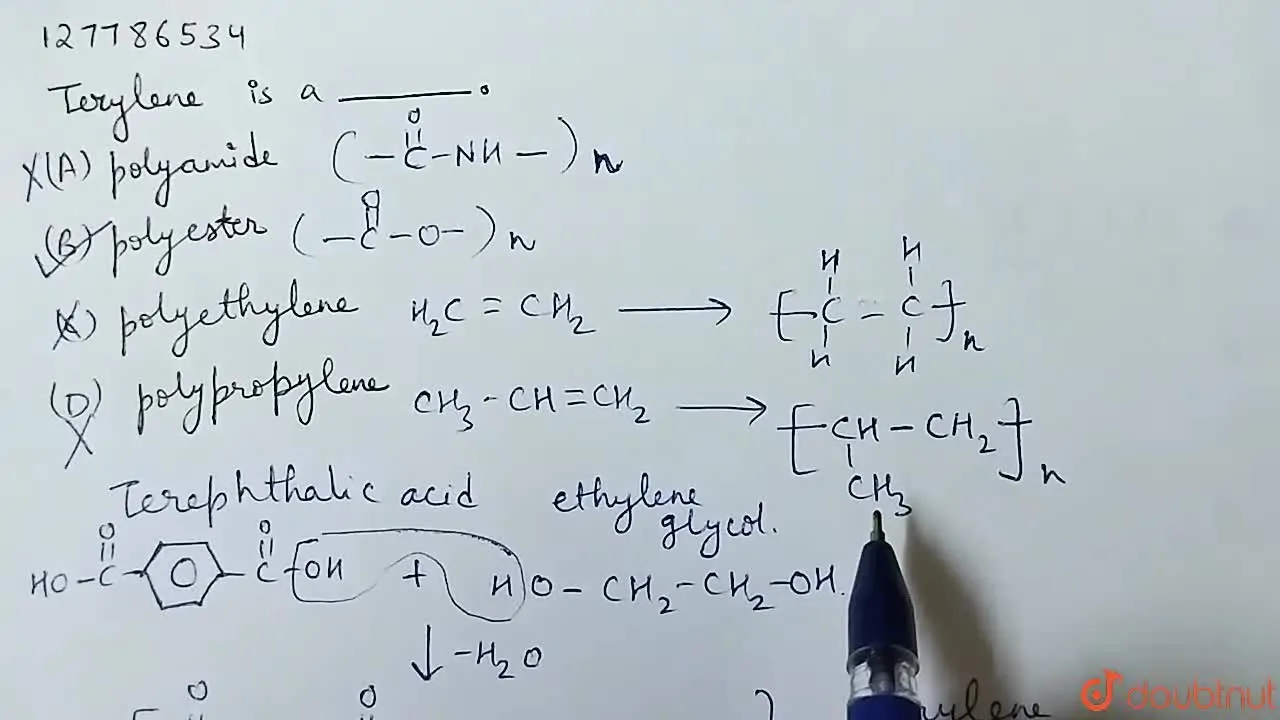 127786534
Terylene is a ______.
(A) polyamide (-C(=O)-NH-)n
(B) polyester (-C(=O)-O-)n
(C) polyethylene H2C=CH2 → [-CH(H)-CH(H)-]n
(D) polypropylene CH3-CH=CH2 → [-CH(CH3)-CH2-]n
Terephthalic acid ethylene glycol.
HO-C(=O)-⌬-C(=O)-OH + HO-CH2-CH2-OH.
↓ -H2O
O O
doubtnut